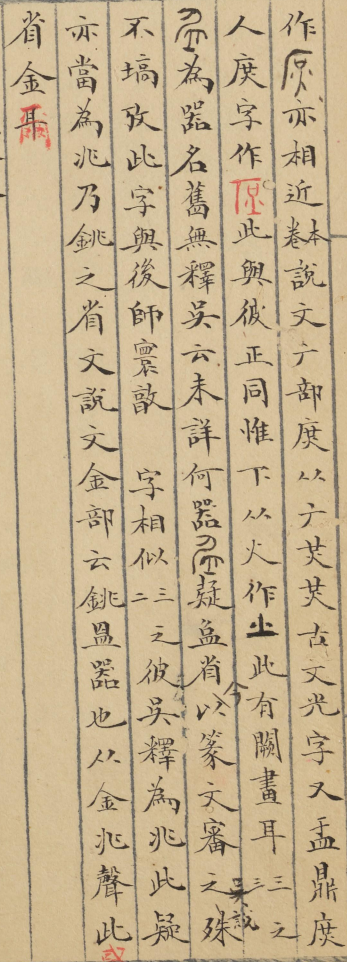 作亦相近本卷說文广部庶从广炗炗古文光字又盂鼎庶
人庶字作此與彼正同惟下从火作㞢此有闕畫耳三三之
為器名舊無釋吳云未詳何器疑盂省今以篆文審之吳說殊
不塙攷此字與後師寰敦 字相似三二之彼吳釋為兆此疑
亦當為兆乃銚之省文說文金部云銚𥁕器也从金兆聲此或
省金耳